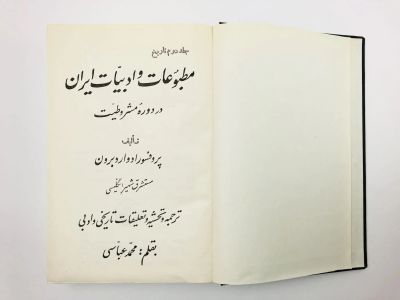 جلد دوم تاریخ
مطبوعات و ادبیات ایران
در دورهٔ مشروطیت
تألیف
پروفسور ادوارد برون
مستشرق شهیر انگلیسی
ترجمه و تحشیه و تعلیقات تاریخی و ادبی
بقلم: محمد عباسی